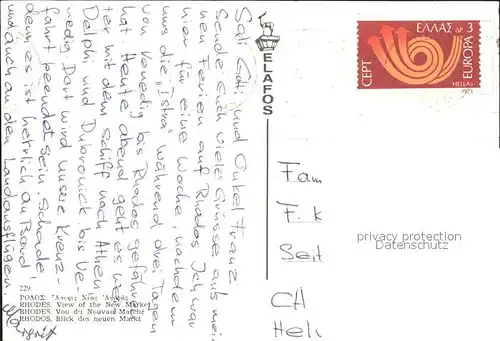 Sali Goti und Onkel Franz
Sende Euch viele Grüsse aus mei-
nen Ferien auf Rhodos. Ich war
hier für eine Woche, nachdem
uns die "Istra" während drei Tagen
von Venedig bis Rhodos gefahren
hat. Heute abend geht es wei-
ter mit dem Schiff nach Athen
Delphi und Dubrovnik bis Ve-
nedig. Dort wird unsere Kreuz-
fahrt beendet sein. Schade,
denn es ist herrlich an Bord
und auch an den Landausflügen.
Margrit
229.
ΡΟΔΟΣ. Ἄποψις Νέας Ἀγορᾶς
RHODES. View of the New Market
RHODES. Vou du Nouvau Marché
RHODOS. Blick des neuen Markt
ELAFOS
ΕΛΛΑΣ ΔΡ. 3
CEPT
EUROPA
HELLAS
1973
Fam
F. K
Seit
CH
Hel
privacy protection
Datenschutz